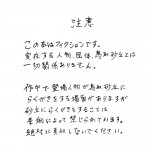 注意
この本はフィクションです。
実在する人物、団体、鳥取砂丘とは
一切関係ありません。
作中で登場人物が鳥取砂丘に
らくがきをする場面がありますが
砂丘にらくがきをすることは
条例によって禁じられております。
絶対に真似しないでください。